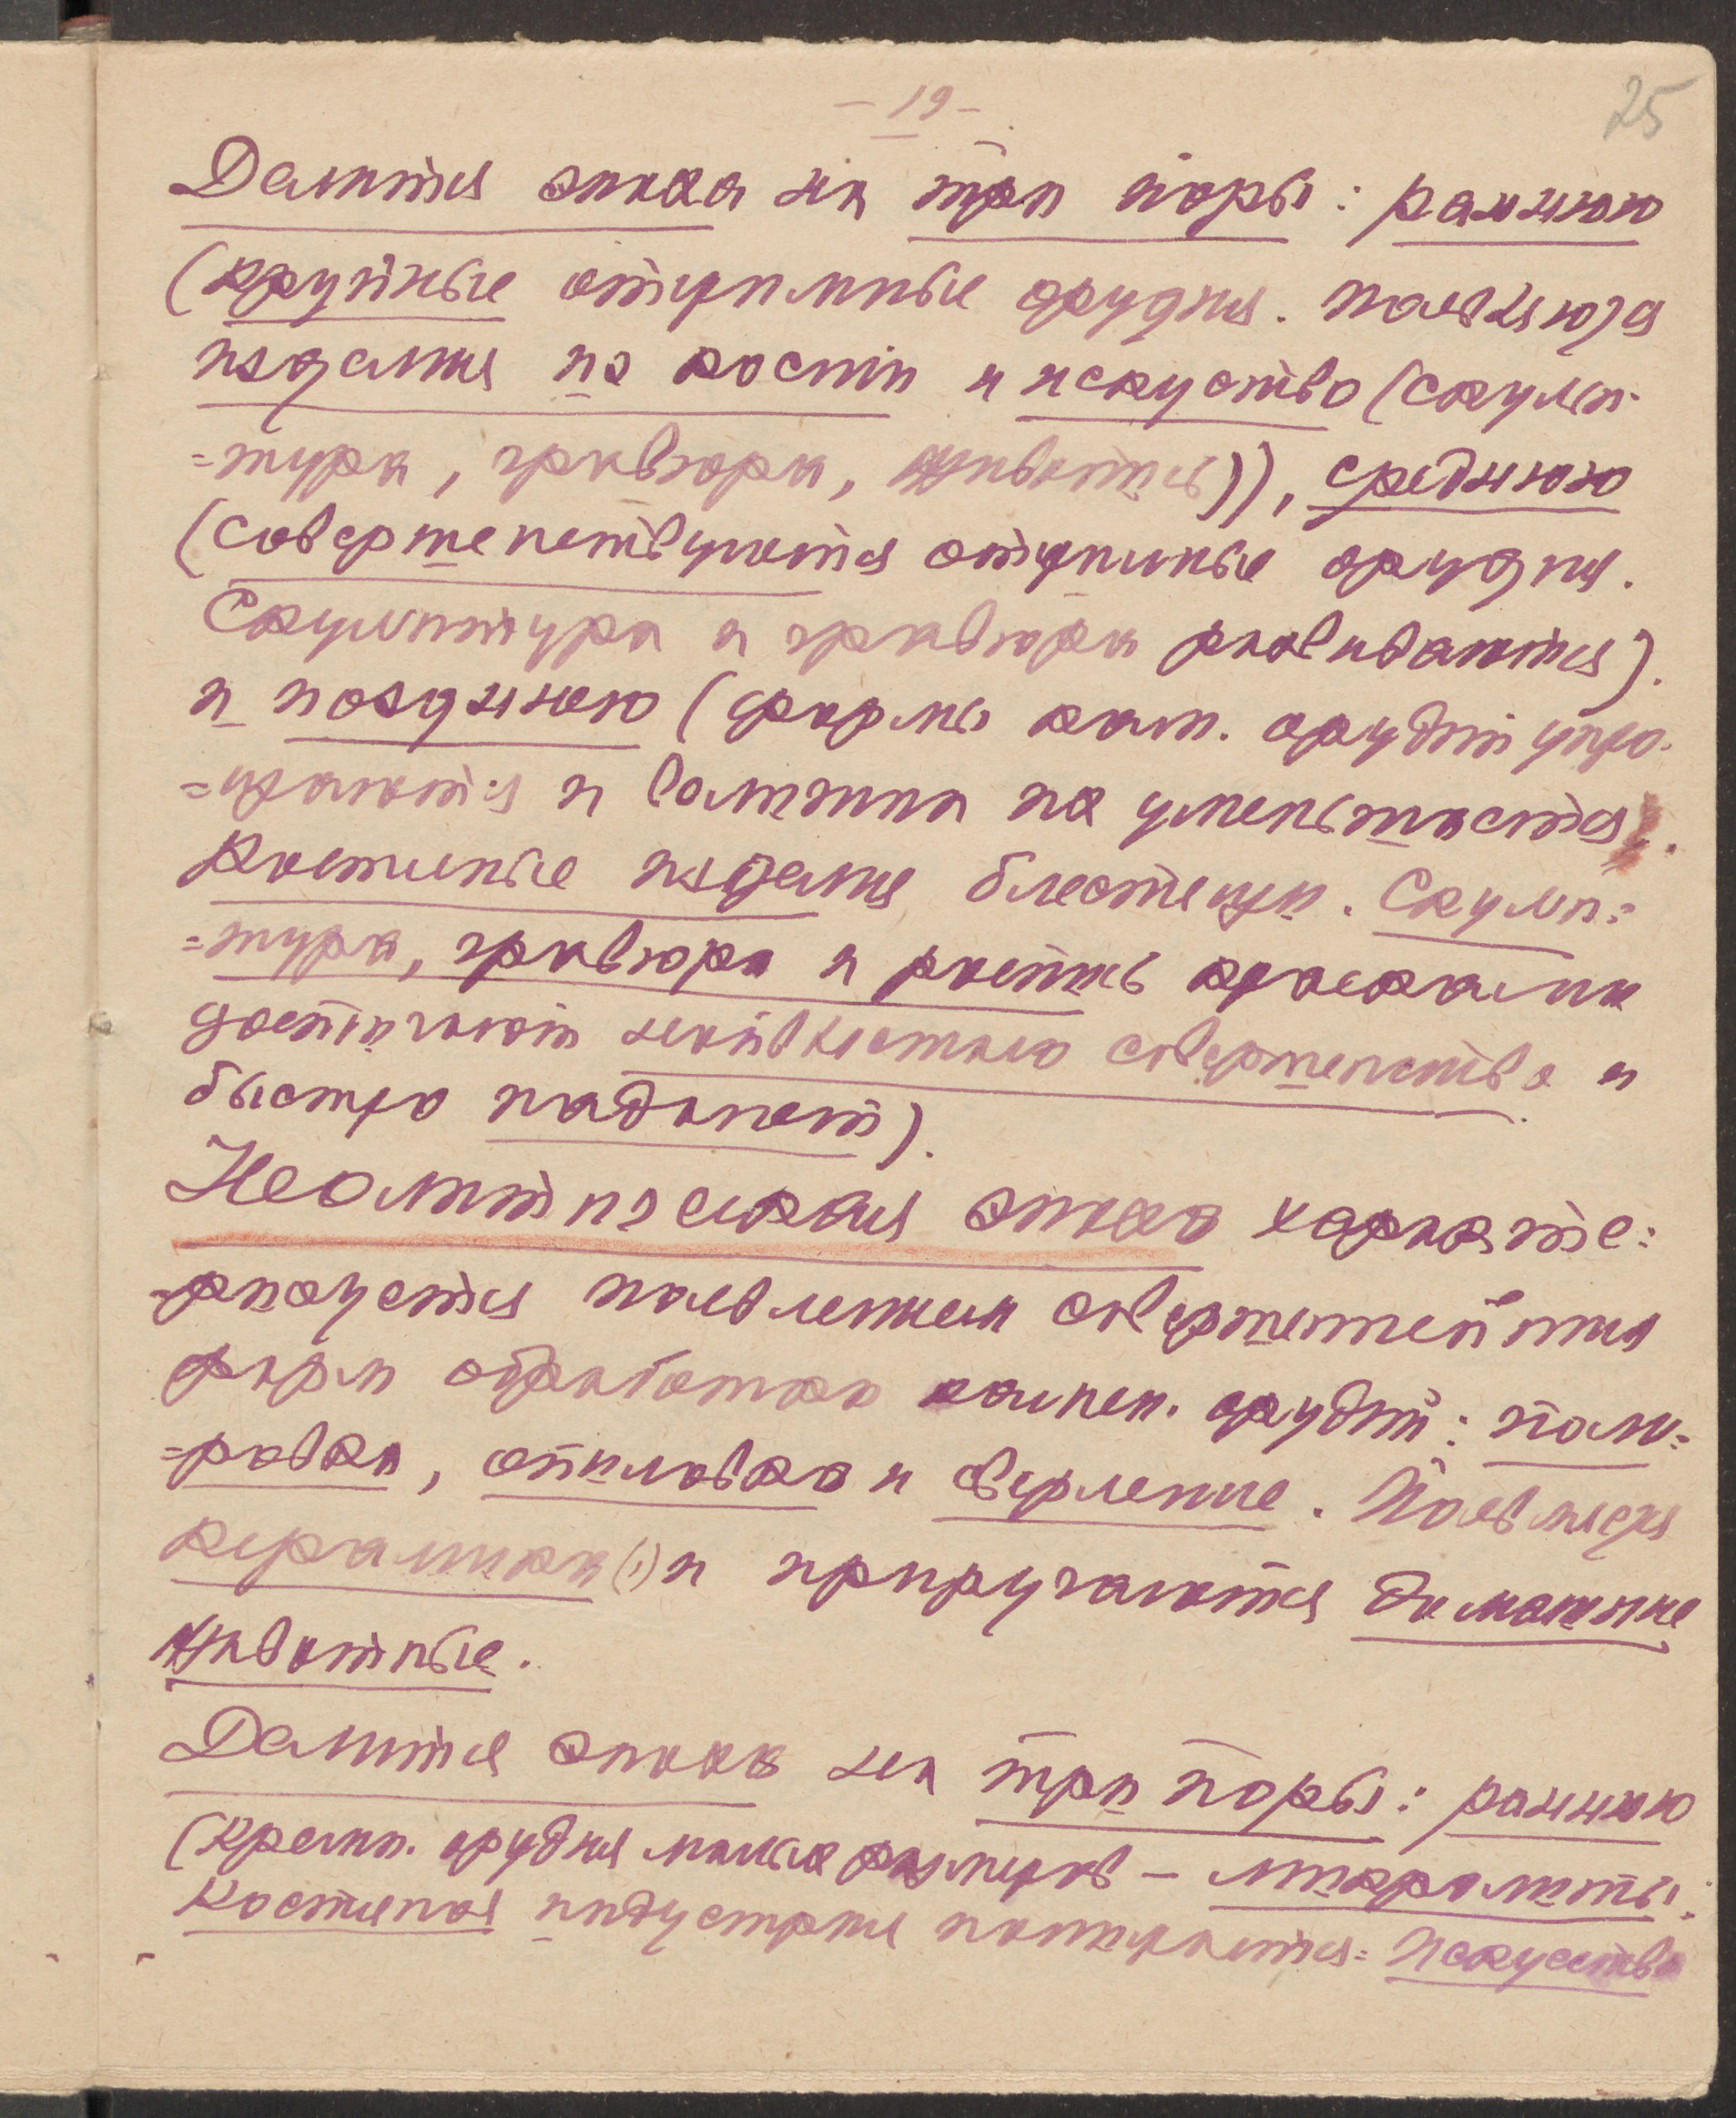 - 19 -
25
Делится эпоха на три поры: раннюю
(крупные отжимные орудия. Появляются
изделия из кости и искуство (скульп-
=тура, гравюра, живопись)), среднюю
(совершенствуются отжимные орудия.
Скульптура и гравюра развиваются).
и позднюю (формы кам. орудий упро-
=щаются и величина их уменьшается.
Костяные изделия блестящи. Скульп=
=тура, гравюра и роспись красками
достигают наивысшего совершенства и
быстро падают).
Неолитическая эпоха характе=
=ризуется появлением совершенней ших
форм обработки камен. орудий: поли=
=ровка, отпиловка и сверление. Появляется
керамика (!) и приручаются домашние
животные.
Делится эпоха на три поры: раннюю
(Кремн. орудия малых размеров - микролиты.
Костяная индустрия понижается. Искусство